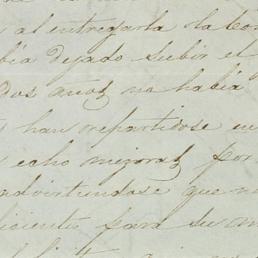 al entregarla la Co
bia dejado subir el
Dos años no habia
han repartidose en
echo mejoras por
advirtiendose que n
icientes para su m